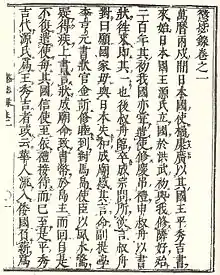 懲毖錄卷之一
萬曆丙戌間日本國使橘康廣以其國王平秀吉書
來始日本國王源氏立國於洪武初與我修隣好殆
二百年其初我國亦嘗遣使修慶弔禮申叔舟以書
狀往來卽其一也後叔舟臨卒成宗問所欲言叔舟
對曰願國家毋與日本失和成廟感其言命副提學
李亨元書狀官金訢修睦到對馬島使臣以風水驚
疑得疾上書言狀成廟命致書幣於島主而回自是
不復遣使每其國信使至依禮接待而已至是平秀
吉代源氏爲王秀吉者或云華人流入倭國負薪爲